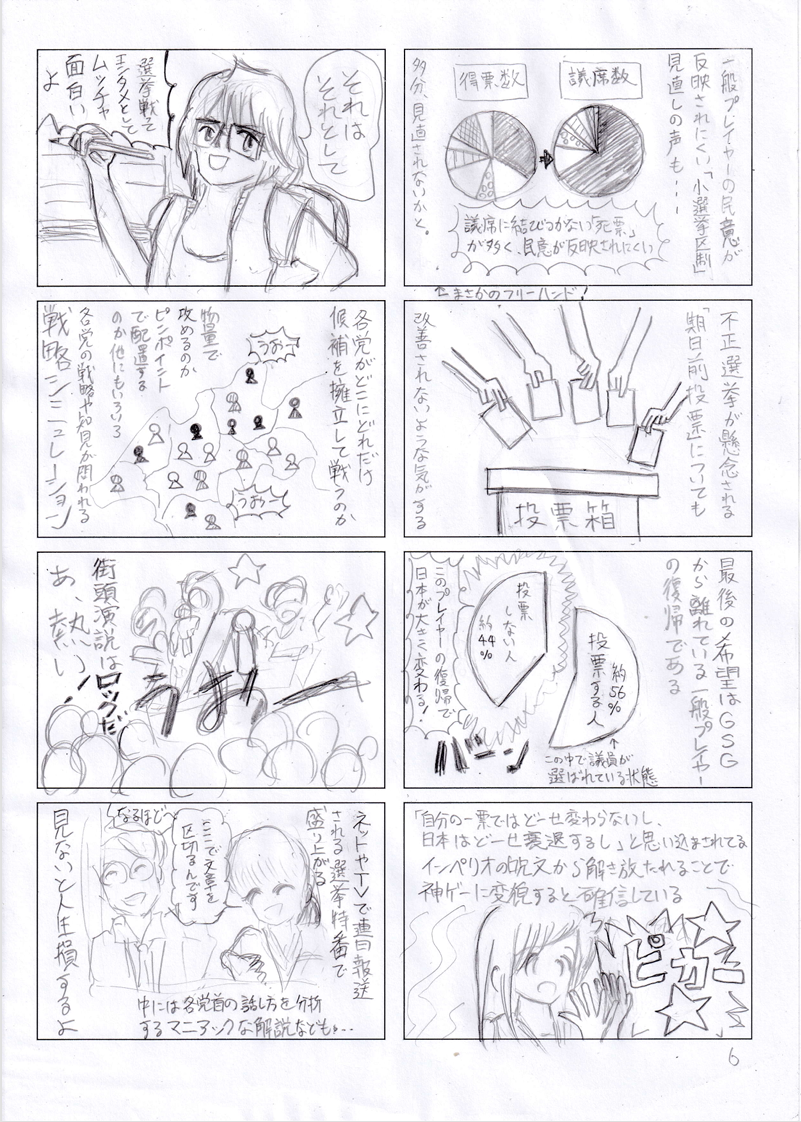 一般プレイヤーの民意が
反映されにくい「小選挙区制」
見直しの声も・・・
議席数
得票数
議席に結びつかない「死票」
が多く、民意が反映されにくい
多分、見直されないかと。
↑まさかのフリーハンド!
不正選挙が懸念される
「期日前投票」についても
投票箱
改善されないような気がする
最後の希望はGSG
から離れている一般プレイヤー
の復帰である
約56%
投票する人
投票
しない人
約44%
↑
この中で議員が
選ばれている状態
このプレイヤーの復帰で
日本が大きく変わる!
「自分の一票ではどーせ変わらないし、
日本はどーせ衰退するし」と思い込まされてる
インペリオの呪文から解き放たれることで
神ゲーに変貌すると確信している
ピカー
それは
それとして
選挙戦って
エンタメとして
ムッチャ
面白い
よ
各党がどこにどれだけ
候補を擁立して戦うのか
うおー
うおー
物量で
攻めるのか
ピンポイント
で配置する
のか他にもいろいろ
各党の戦略や知見が問われる
戦略シミュレーション
街頭演説は
ロックだ
あ、熱い!!
うおー
ネットやTVで連日報送
される選挙特番で
盛り上がる
ここで文章を
区切るんです
なるほど
中には各党首の話し方を分析
するマニアックな解説なども・・・
見ないと人生損するよ
6